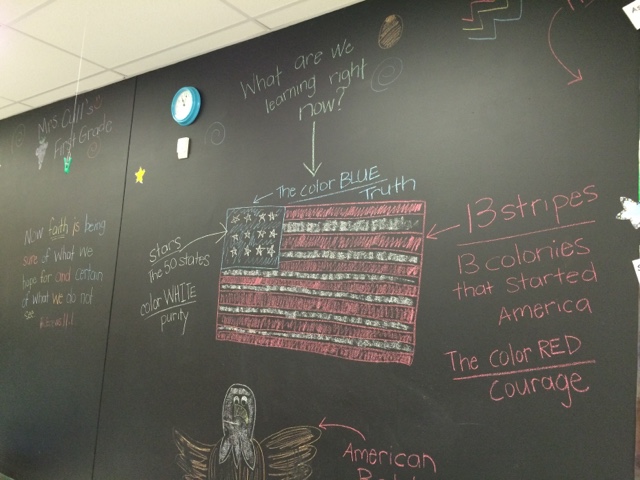 What are we
learning right
now?
Mrs Cull's
First Grade
Now faith is being
sure of what we
hope for and certain
of what we do not
see
The color BLUE
Truth
stars
The 50 states
color WHITE
purity
13 stripes
13 colonies
that started
America
The color RED
courage
American